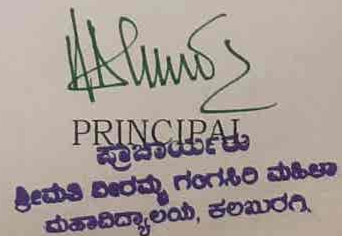 PRINCIPAL
ಪ್ರಾಚಾರ್ಯರು
ಶ್ರೀಮತಿ ವೀರಮ್ಮ ಗಂಗಸಿರಿ ಮಹಿಳಾ
ಮಹಾವಿದ್ಯಾಲಯ, ಕಲಬುರಗಿ.